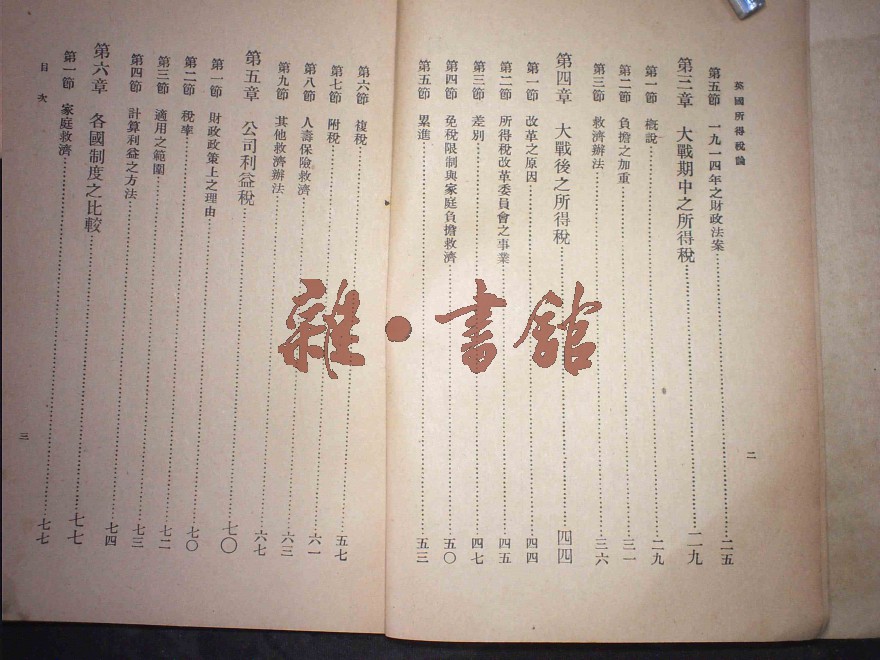 英國所得稅論
第五節 一九一四年之財政法案 二五
第三章 大戰期中之所得稅 二九
第一節 概說 二九
第二節 負擔之加重 三一
第三節 救濟辦法 三六
第四章 大戰後之所得稅 四四
第一節 改革之原因 四四
第二節 所得稅改革委員會之事業 四五
第三節 差別 四七
第四節 免稅限制與家庭負擔救濟 五〇
第五節 累進 五三
二
第六節 複稅 五七
第七節 附稅 六一
第八節 人壽保險救濟 六三
第九節 其他救濟辦法 六七
第五章 公司利益稅 七〇
第一節 財政政策上之理由 七〇
第二節 稅率 七二
第三節 適用之範圍 七三
第四節 計算利益之方法 七四
第六章 各國制度之比較 七七
第一節 家庭救濟 七七
目次
三
雜·書館